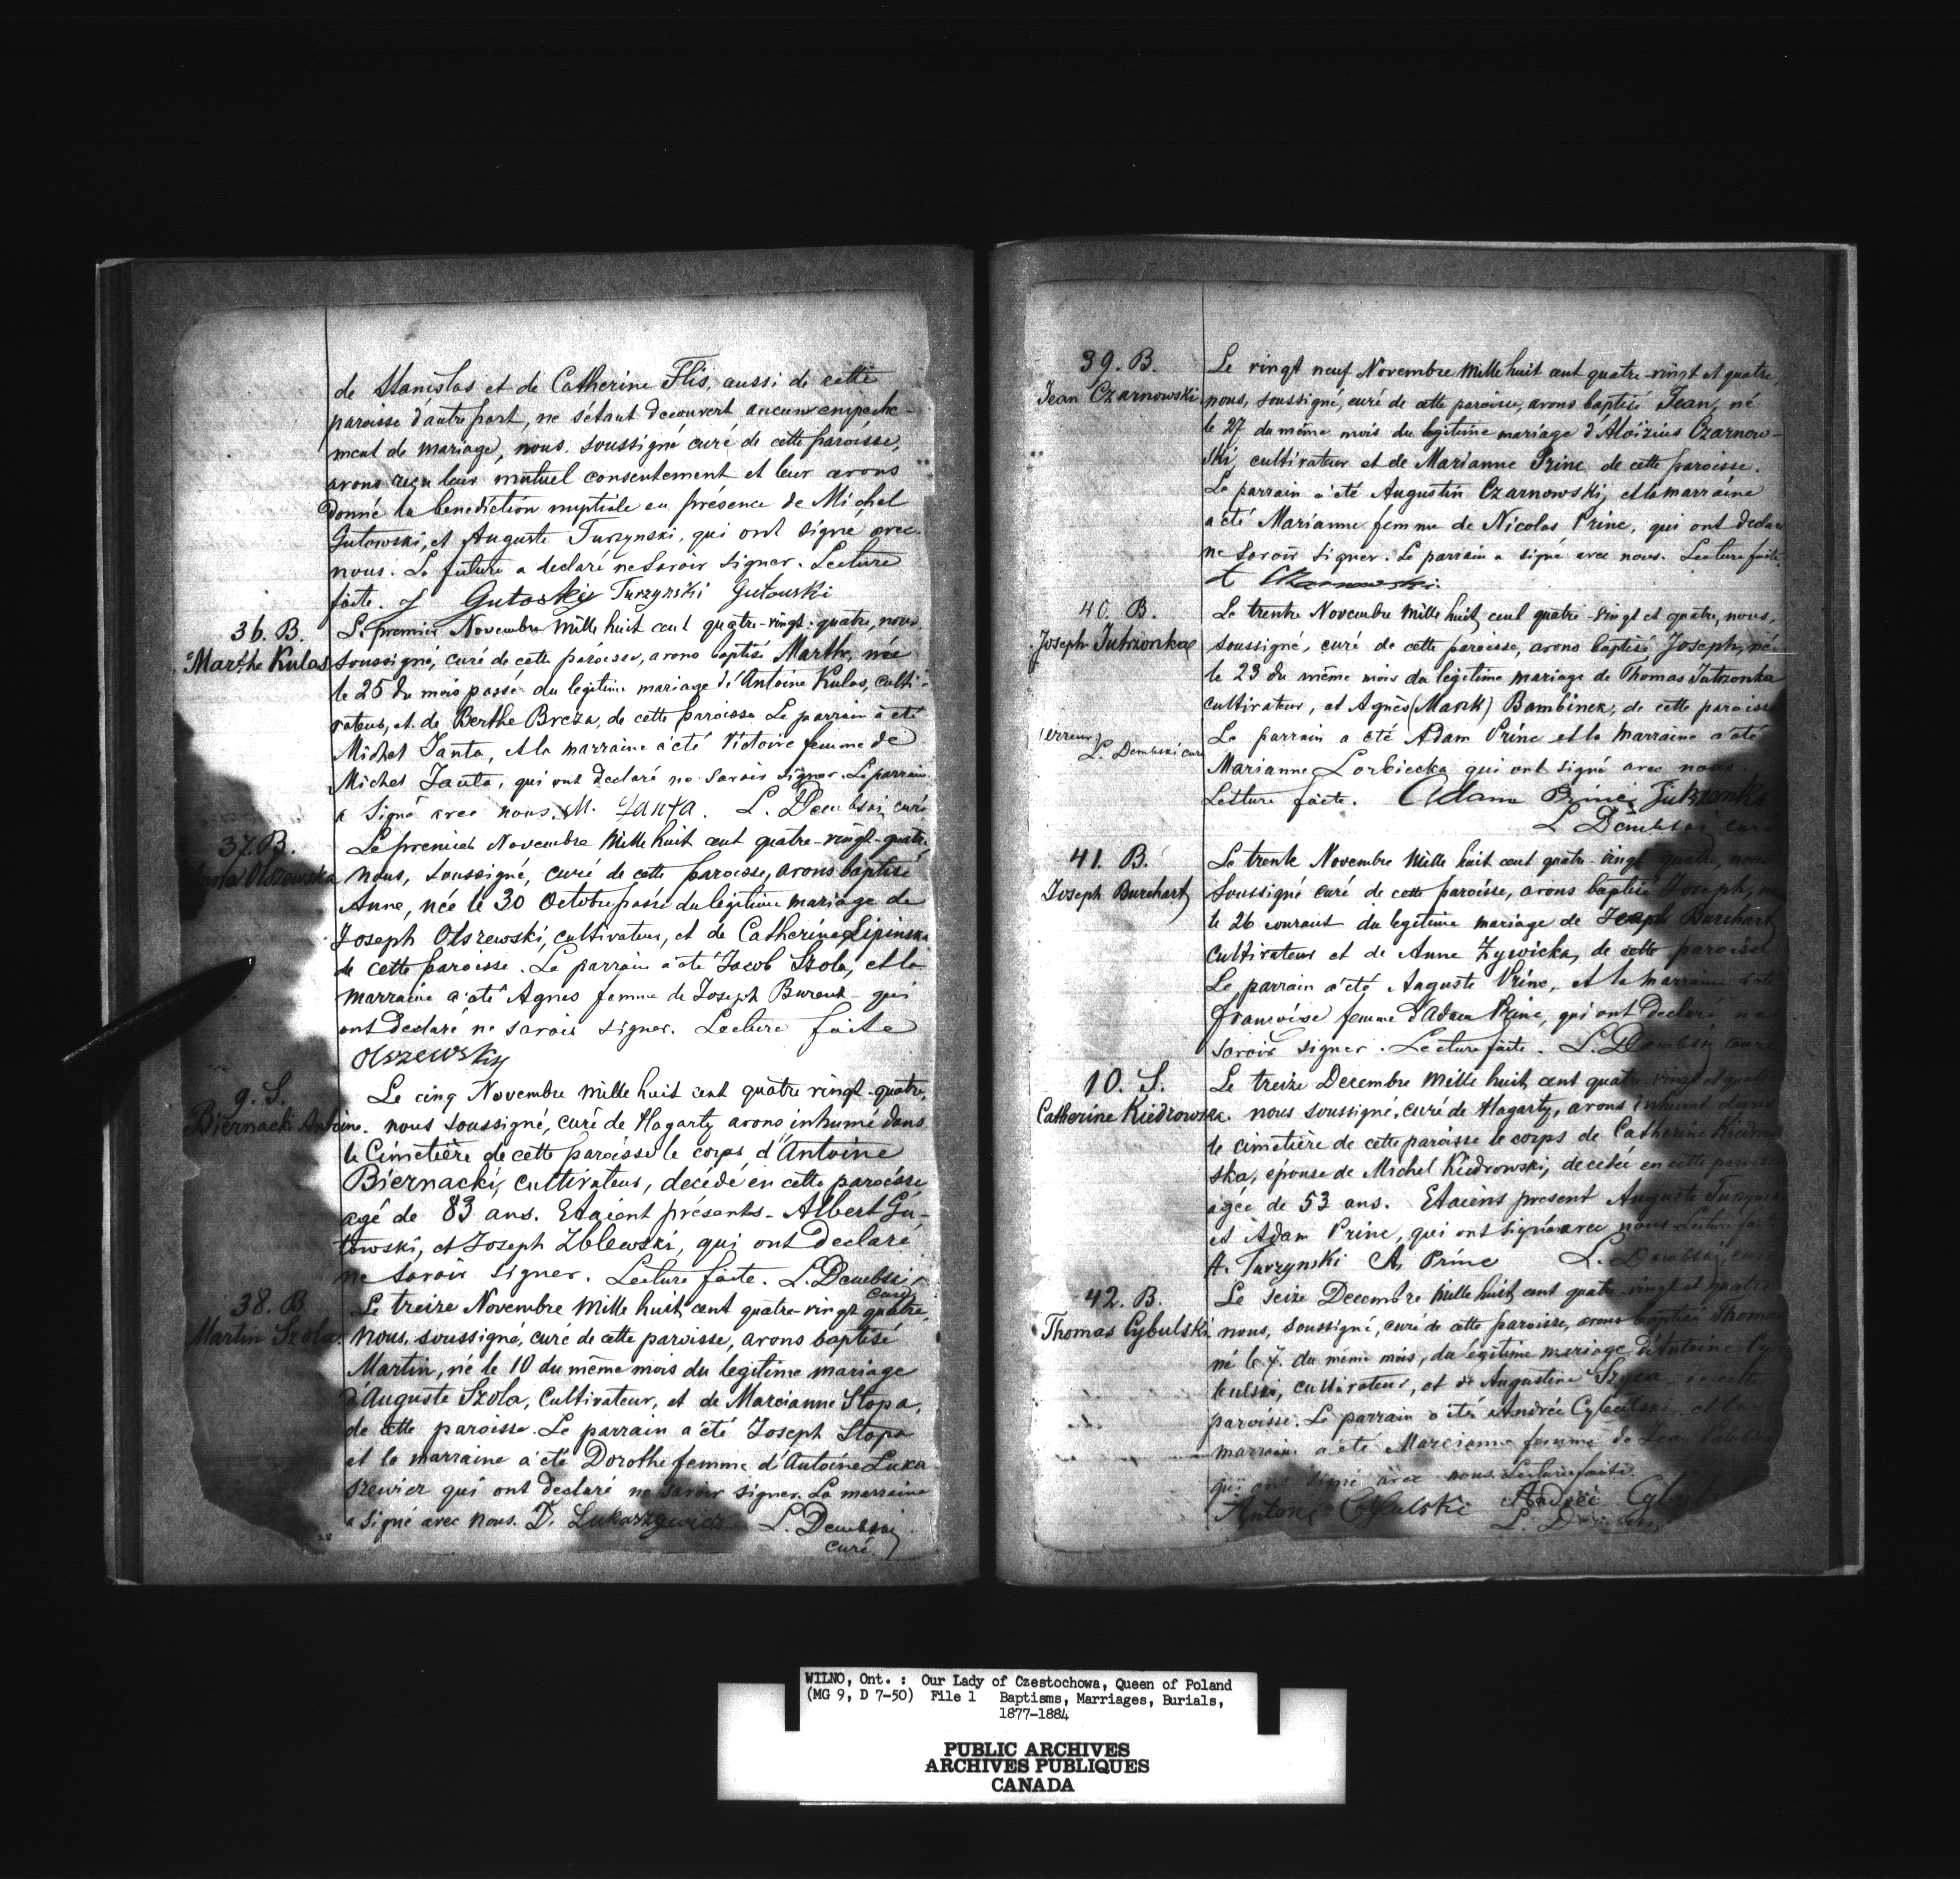 de Stanislas et de Catherine Flis, aussi de cette
paroisse d'autre part, ne s'étant decouvert aucun empeche-
ment de mariage, nous soussigné curé de cette paroisse,
avons reçu leur mutuel consentement et leur avons
donné la benediction nuptiale en présence de Michel
Gutowski, et Auguste Turzynski, qui ont signé avec
nous. La future a declaré ne savoir signer. Lecture
faite. J Gutoski Turzynski Gutouski
36. B.
Marthe Kulas
Le premier Novembre mille huit cent quatre-vingt-quatre, nous,
soussigné, curé de cette paroisse, avons baptisé Marthe, née
le 25 du mois passé du legitime mariage d'Antoine Kulas, culti-
vateur, et de Berthe Breza, de cette paroisse Le parrain a été
Michel Janta, et la marraine a été Victoire femme de
Michel Janta, qui ont declaré ne savoir signer. Le parrain
a signé avec nous. M. Janta. L. Dembski, curé
37. B.
Olszewska
Le premier Novembre mille huit cent quatre-vingt-quatre,
nous, soussigné, curé de cette paroisse, avons baptisé
Anne, née le 30 Octobre passé du legitime mariage de
Joseph Olszewski, cultivateur, et de Catherine Lipinska
de cette paroisse. Le parrain a été Jacob Szola, et la
marraine a été Agnes femme de Joseph qui
ont declaré ne savoir signer. Lecture faite
Olszewsky
9. S.
Biernacki Antoine.
Le cinq Novembre mille huit cent quatre vingt-quatre,
nous soussigné, curé de Hagarty avons inhumé dans
le Cimetière de cette paroisse le corps d'Antoine
Biernacki, cultivateur, décédé en cette paroisse
agé de 83 ans. Etaient présents - Albert Gu-
towski, et Joseph Zblewski, qui ont declaré
ne savoir signer. Lecture faite. L. Dembski,
curé
38. B.
Martin Szola.
Le treize Novembre mille huit cent quatre-vingt quatre,
nous, soussigné, curé de cette paroisse, avons baptisé
Martin, né le 10 du même mois du legitime mariage
d'Auguste Szola, cultivateur, et de Marcianne Stopa,
de cette paroisse. Le parrain a été Joseph Stopa
et la marraine a été Dorothe femme d'Antoine Luka
szewicz qui ont declaré ne savoir signer. La marraine
a signé avec nous. D. Lukaszewicz L. Dembski
curé.
39. B.
Jean Czarnowski
Le vingt neuf Novembre mille huit cent quatre-vingt et quatre,
nous, soussigné, curé de cette paroisse, avons baptisé Jean, né
le 27 du même mois du legitime mariage d'Aloïzius Czarnow-
ski, cultivateur et de Marianne Prine de cette paroisse.
Le parrain a été Augustin Czarnowski, et la marraine
a été Marianne femme de Nicolas Prine, qui ont declaré
ne savoir signer. Le parrain a signé avec nous. Lecture faite.
A Czarnowski.
40. B.
Joseph Jutrzonka
(erreur)
L. Dembski curé
Le trente Novembre mille huit cent quatre-vingt et quatre, nous,
soussigné, curé de cette paroisse, avons baptisé Joseph, né
le 23 du même mois du legitime mariage de Thomas Jutrzonka
cultivateur, et Agnès (Mask) Bambinek, de cette paroisse
Le parrain a été Adam Prine et la marraine a été
Marianne Lorbiecka qui ont signé avec nous.
Lecture faite. Adam Prine Jutrzonka
L Dembski curé
41. B.
Joseph Burchart
Le trente Novembre mille huit cent quatre-vingt quatre, nous
soussigné curé de cette paroisse, avons baptisé Joseph, né
le 26 courant du legitime mariage de Joseph Burchart
cultivateur et de Anne Zywicka, de cette paroisse
Le parrain a été Auguste Prine, et la marraine a été
Françoise femme d'Adam Prine, qui ont declaré ne
savoir signer. Lecture faite. L. Dembski curé
10. S.
Catherine Kiedrowska.
Le treize Decembre mille huit cent quatre-vingt et quatre
nous soussigné, curé de Hagarty, avons inhumé dans
le cimetière de cette paroisse le corps de Catherine Kiedrow
ska, épouse de Michel Kiedrowski, decedée en cette paroisse
agée de 53 ans. Etaient present Auguste Turzynski
et Adam Prine, qui ont signé avec nous Lecture faite
A. Turzynski A. Prine L. Dembski, curé
42. B.
Thomas Cybulski
Le seize Decembre mille huit cent quatre-vingt et quatre
nous, soussigné, curé de cette paroisse, avons baptisé Thomas
né le 7. du même mois, du légitime mariage d'Antoine Cy
bulski, cultivateur, et de Augustine Szyca de cette
paroisse. Le parrain a été André Cybulski et la
marraine a été Marcianne femme de Jean
qui ont signé avec nous. Lecture faite.
Antoni Cybulski Andrei
L.
WILNO, Ont. : Our Lady of Czestochowa, Queen of Poland
(MG 9, D 7-50) File 1 Baptisms, Marriages, Burials,
1877-1884
PUBLIC ARCHIVES
ARCHIVES PUBLIQUES
CANADA